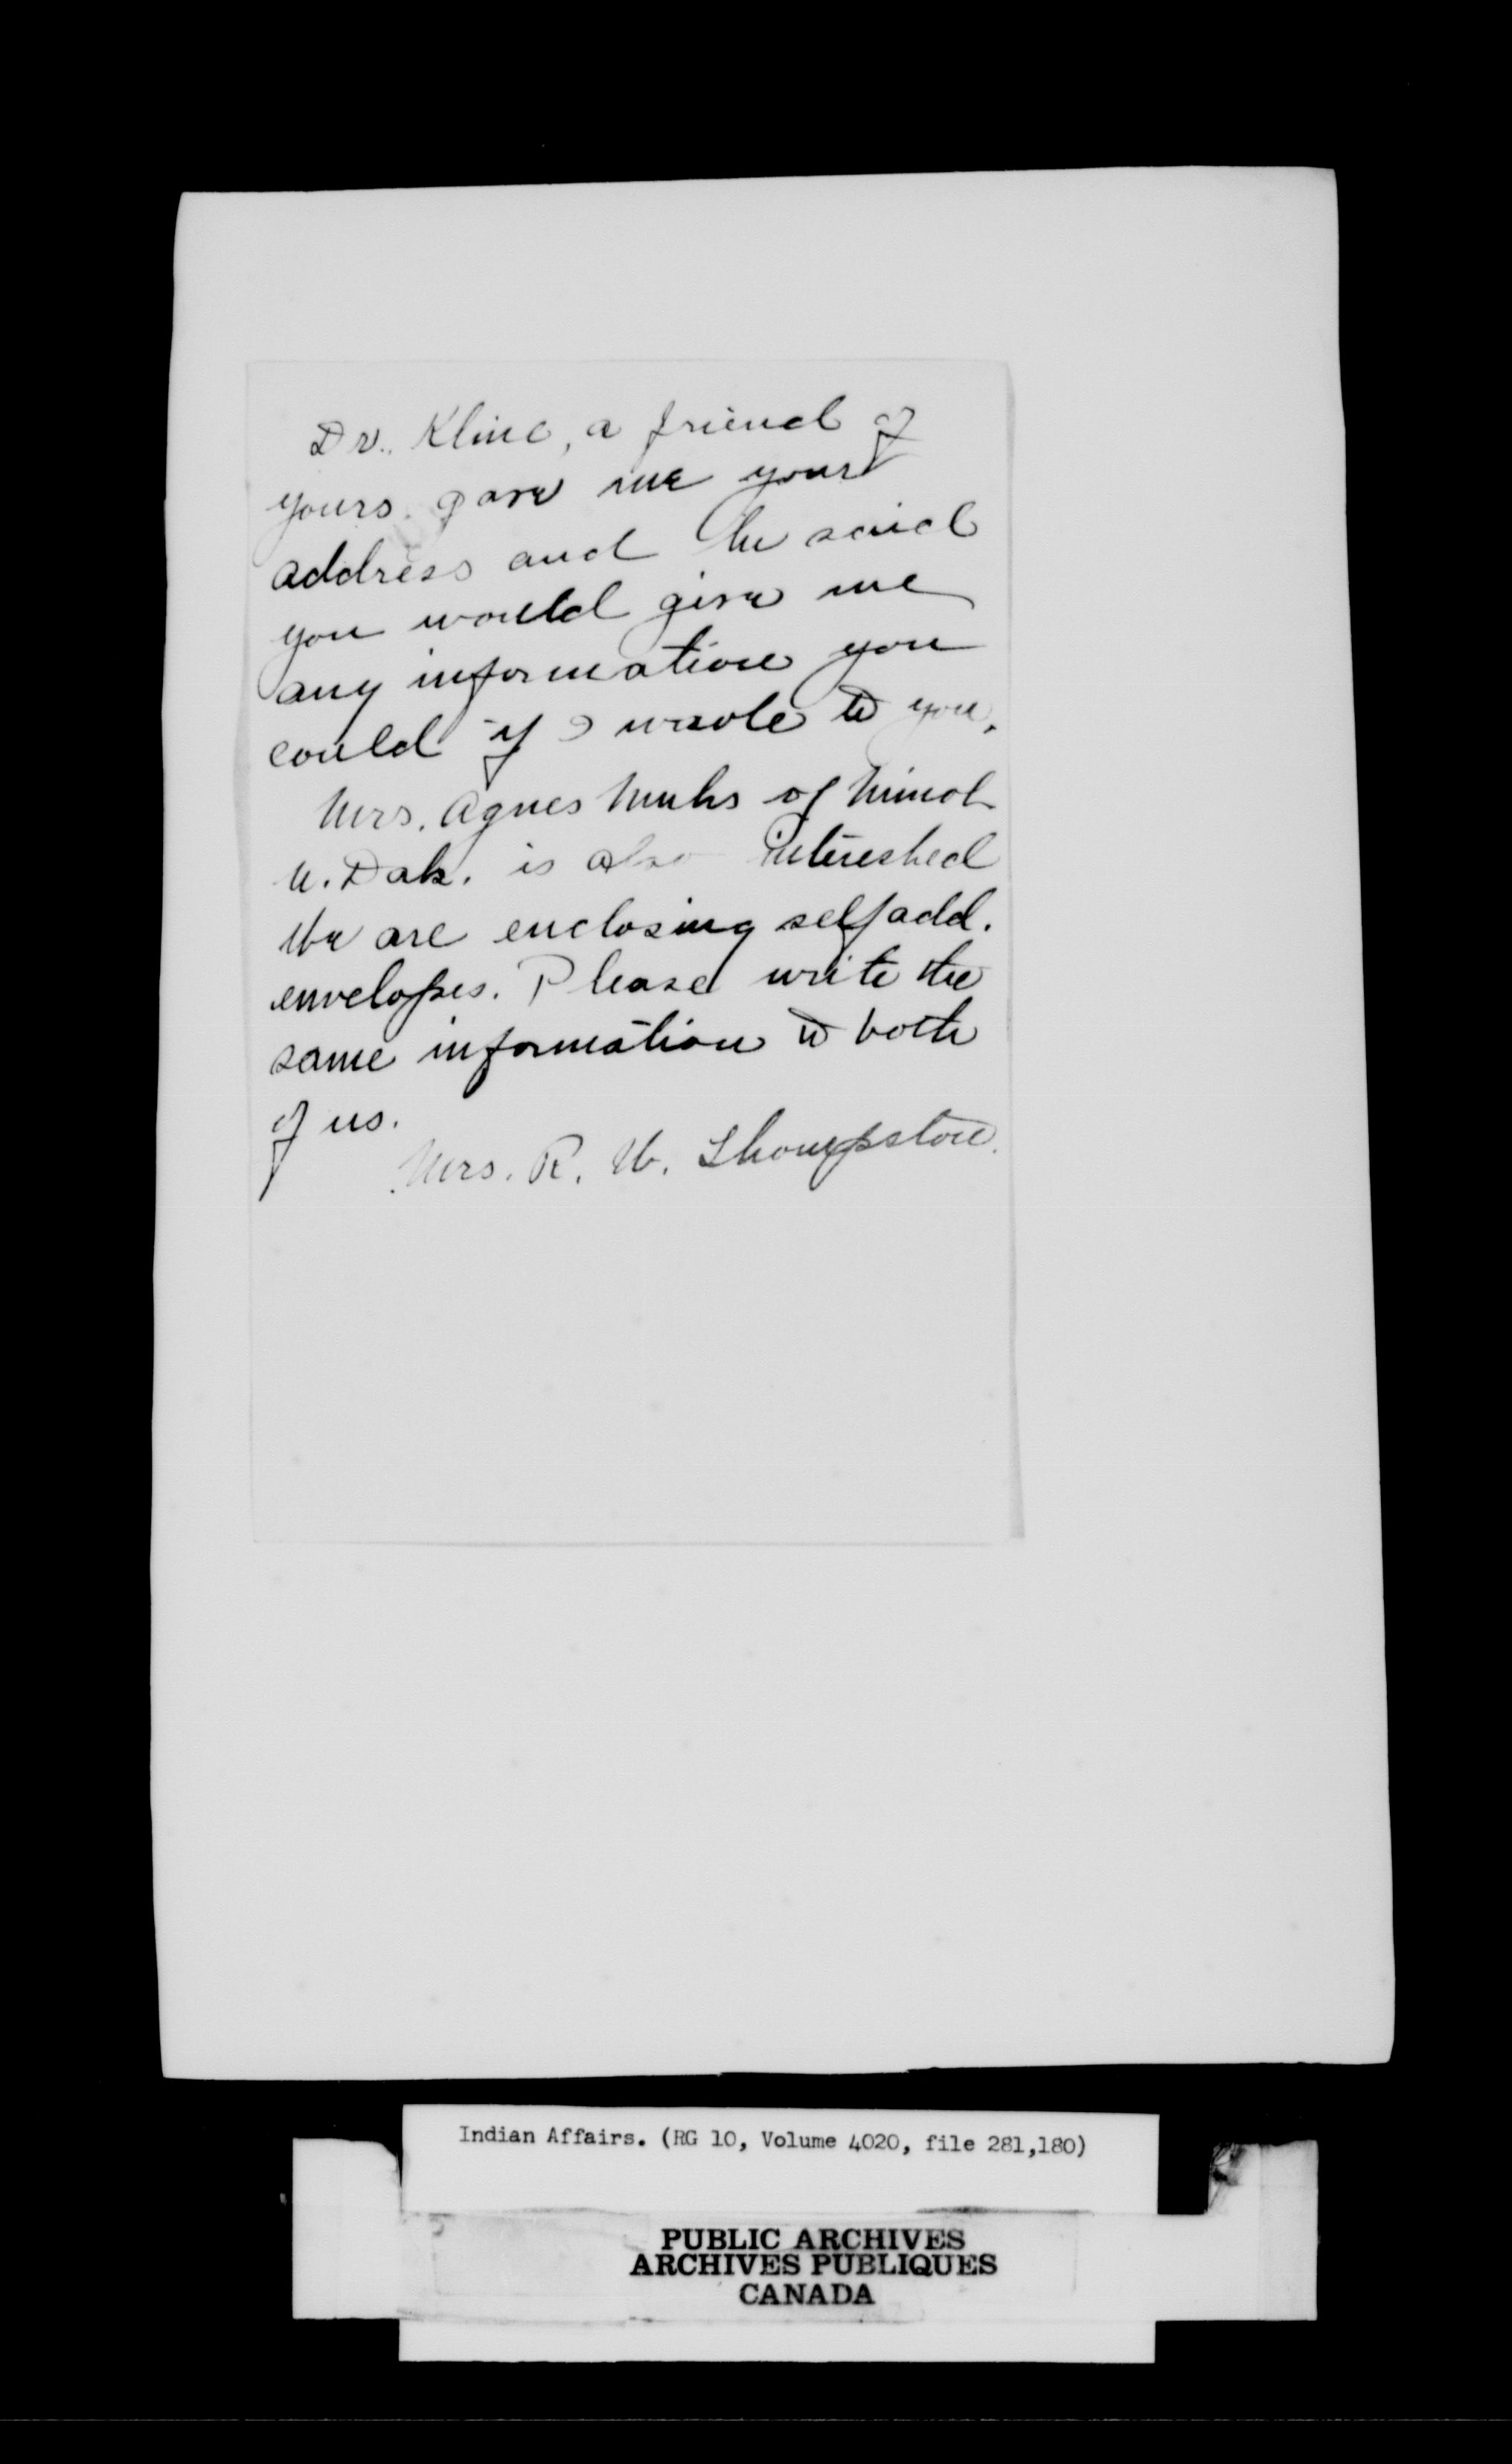 Dr. Kline, a friend of
yours gave me your
address and he said
you would give me
any information you
could if I wrote to you.
Mrs. Agnes Muhs of Minot
N. Dak. is also interested
We are enclosing self add.
envelopes. Please write the
same information to both
of us.
Mrs. R. W. Thompston.
Indian Affairs. (RG 10, Volume 4020, file 281,180)
PUBLIC ARCHIVES
ARCHIVES PUBLIQUES
CANADA